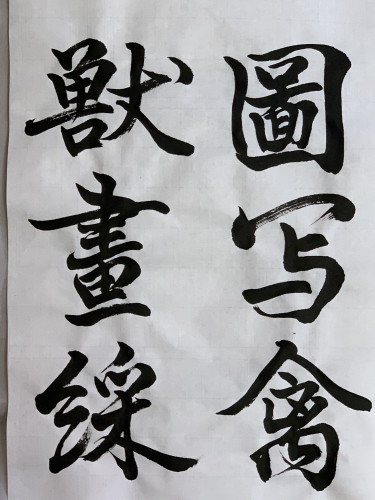 圖写禽
獸畫綵